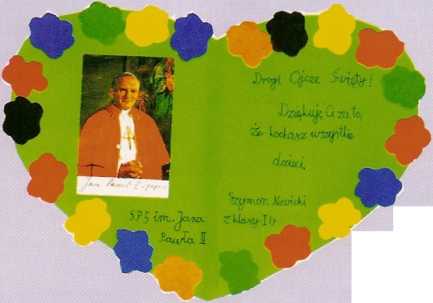 Drogi Ojcze Święty!
Dziękuję Ci za to,
że kochasz wszystkie
dzieci.
Szymon Nowicki
z klasy I
S.P 5 im. Jana
Pawła II